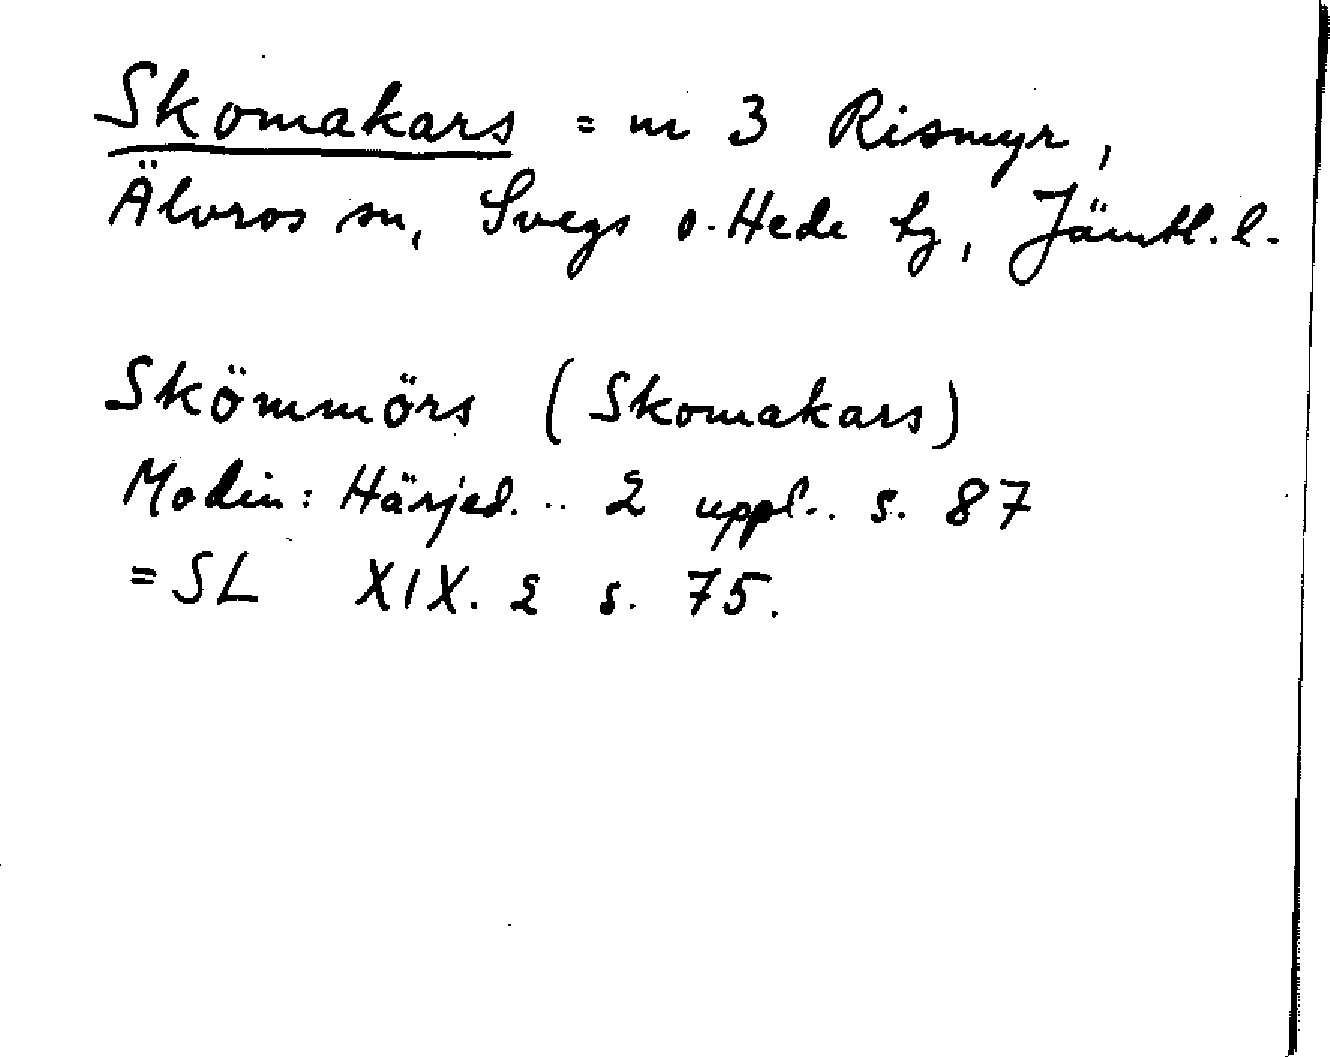 Skomakars = m 3 Rismyr,
Älvros sn, Svegs o. Hede hg, Jämtl. l.
Skömmörs (Skomakars)
Modin: Härjed. .. 2 uppl.. s. 87
= SL XIX. 2 s. 75.